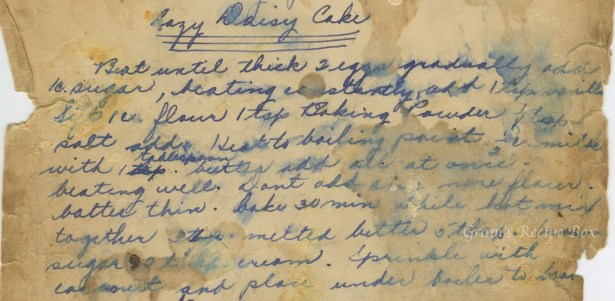 Lazy Daisy Cake
Beat until thick 2 eggs gradually add
1c. sugar, beating constantly, add 1 tsp vanilla
1c flour 1 tsp Baking Powder
salt add. Heat to boiling point milk
with 1 tablespoon butter add all at once.
beating well. Dont add any more flour.
batter thin. Bake 30 min while hot mix
together melted butter
sugar cream. Sprinkle with
coconut and place under broiler to
Gram's Recipe Box